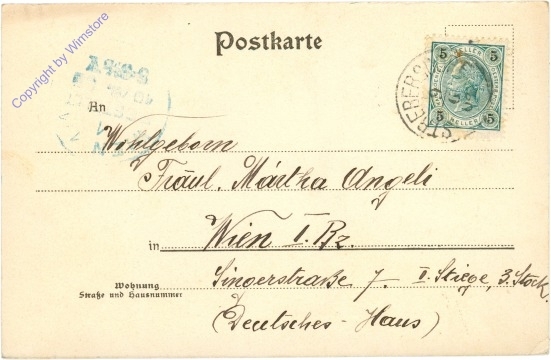 Postkarte
Copyright by Wimstore
5 HELLER 5
5 HELLER 5
STREBERSD
An
Wohlgeborn
Fräul. Mártha Angeli
in Wien I. Bz.
Wohnung
Straße und Hausnummer
Singerstraße 7. II. Stiege, 3. Stock,
(Deutsches-Haus)